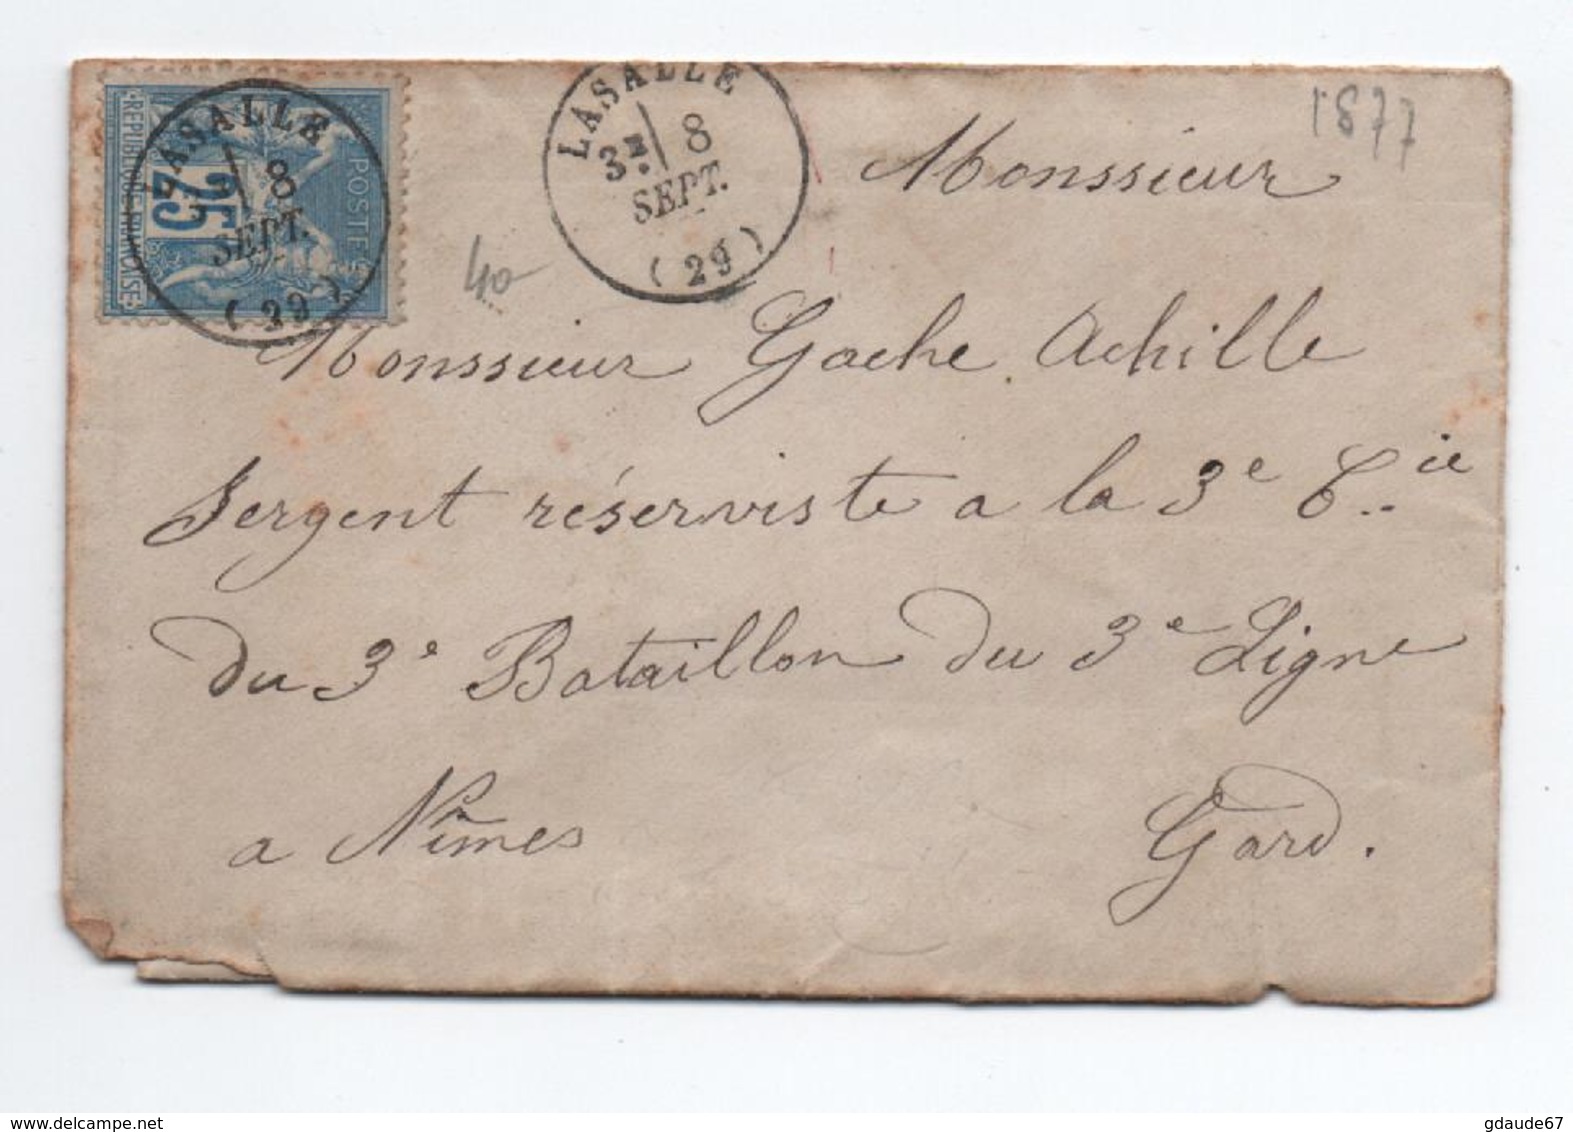 REPUBLIQUE FRANCAISE
POSTES
25
LASALLE
8
SEPT.
(29)
LASALLE
3E 8
SEPT.
(29)
1877
40
Monssieur
Monssieur Gache Achille
Sergent réserviste a la 3e Cie
du 3e Bataillon du 3e Ligne
a Nîmes Gard.
www.delcampe.net
gdaude67